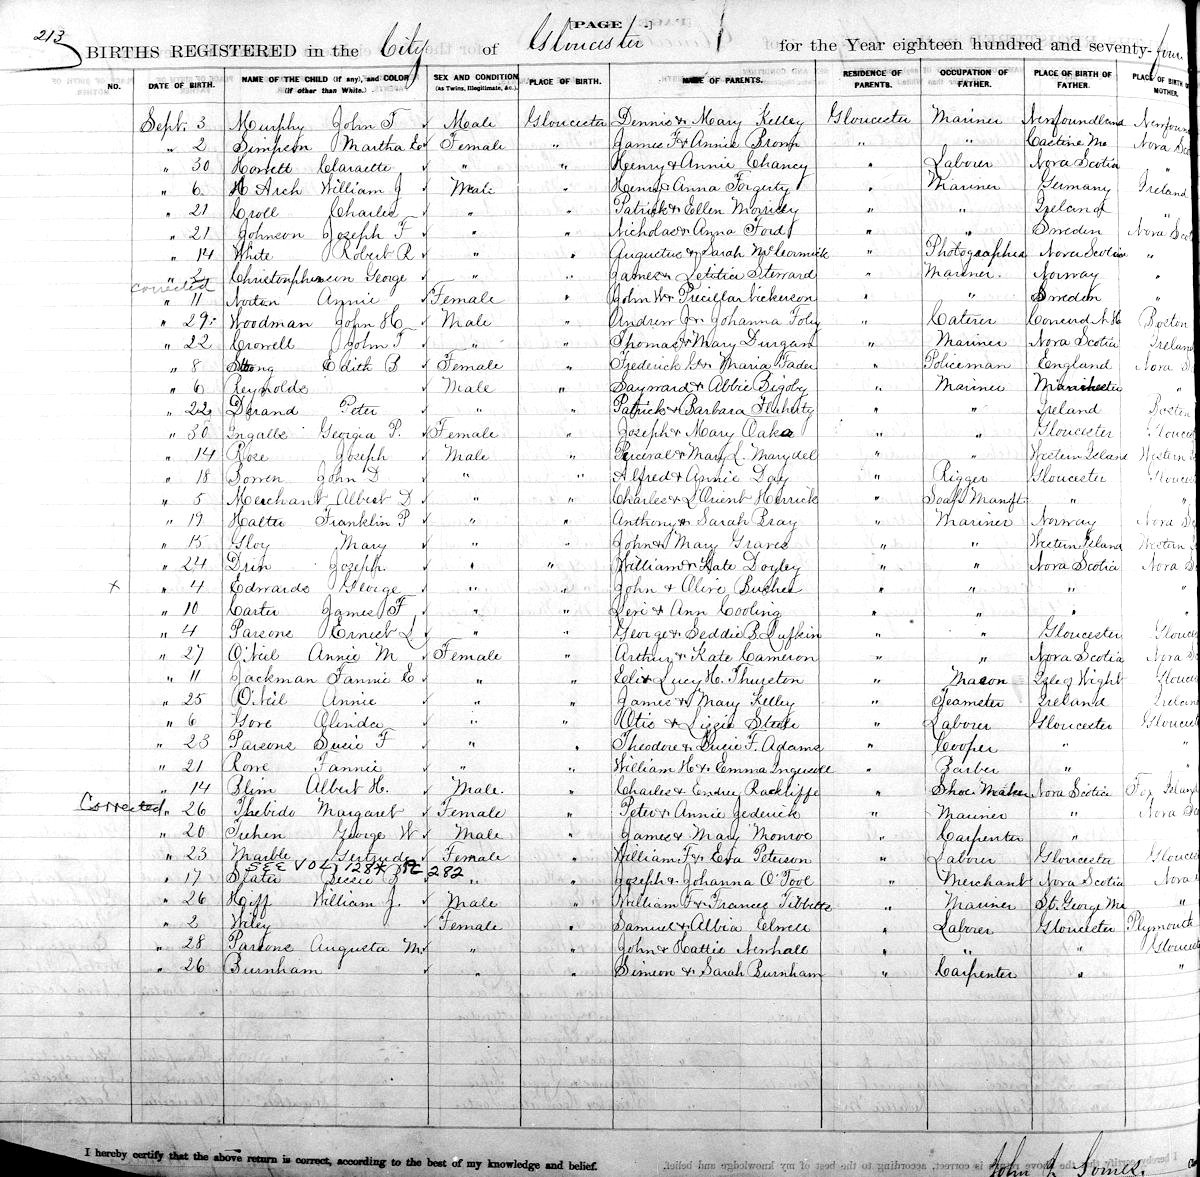 213
[PAGE 1]
BIRTHS REGISTERED in the City of Gloucester for the Year eighteen hundred and seventy-four.
NO. DATE OF BIRTH. NAME OF THE CHILD (if any), and COLOR (if other than White.) SEX AND CONDITION (as Twins, Illegitimate, &c.) PLACE OF BIRTH. NAME OF PARENTS. RESIDENCE OF PARENTS. OCCUPATION OF FATHER. PLACE OF BIRTH OF FATHER. PLACE OF BIRTH OF MOTHER.
Sept. 3 Murphy John F ✓ Male Gloucester Dennis & Mary Kelley Gloucester Mariner Newfoundland Newfoun
" 2 Simpson Martha E ✓ Female " James F & Annie Brown " " Castine Me Nova Sco
" 30 Howett Claraette ✓ " " Henry & Annie Chancy " Laborer Nova Scotia "
" 6 McArch William J ✓ Male " Henry & Anna Fogerty " Mariner Germany Ireland
" 21 Croll Charles ✓ " " Patrick & Ellen Morrisey " " Ireland "
" 21 Johnson Joseph F ✓ " " Nicholas & Anna Ford " " Sweden Nova Scot
" 14 White Robert R ✓ " " Augustus & Sarah McCormick " Photographer Nova Scotia "
" 2 Christophersen George ✓ " " James & Letitia Steward " Mariner. Norway "
corrected
" 11 Norton Annie ✓ Female " John W & Priscilla Nickerson " " Sweden "
" 29 Woodman John H ✓ Male " Andrew J & Johanna Foley " Caterer Concord N.H Boston
" 22 Crowell John F ✓ " " Thomas & Mary Durgan " Mariner Nova Scotia Ireland
" 8 Strong Edith B ✓ Female " Frederick & Maria Fader " Policeman England Nova S
" 6 Reynolds ✓ Male " Sayward & Abbie Bigsby " Mariner Manchester "
" 22 Durand Peter ✓ " " Patrick & Barbara Flaherty " " Ireland Boston
" 30 Ingalls Georgia P. ✓ Female " Joseph & Mary Oaks " " Gloucester Glouces
" 14 Rose Joseph ✓ Male " Perceval & Mary L. Marydel " " Western Island Western I
" 18 Borren John D ✓ " " Alfred & Annie Day " Rigger Gloucester Glouces
" 5 Merchant Albert D ✓ " " Charles & L Orient Herrick " Soap Manft " "
" 19 Halter Franklin P ✓ " " Anthony & Sarah Bray " Mariner Norway Nova Sc
" 15 Gloy Mary ✓ " " John & Mary Graves " " Western Island Western I
" 24 Drin Joseph ✓ " " William & Kate Doyley " " Nova Scotia Nova S
x " 4 Edwards George ✓ " " John & Olive Busher " " " "
" 10 Carter James F ✓ " " Levi & Ann Cooling " " " "
" 4 Parsons Ernest L ✓ " " George & Seddie B. Lufkin " " Gloucester Glouces
" 27 O'Neil Annie M ✓ Female " Arthur & Kate Cameron " " Nova Scotia Nova S
" 11 Jackman Fannie E ✓ " " Eli & Lucy H. Thurston " Mason Isle of Wight Glouces
" 25 O'Neil Annie ✓ " " James & Mary Kelley " Teamster Ireland Ireland
" 6 Gove Olinda ✓ " " Otis & Lizzie Steele " Laborer Gloucester Glouces
" 23 Parsons Susie F ✓ " " Theodore & Susie F. Adams " Cooper " "
" 21 Rowe Fannie ✓ " " William H & Emma Ingersoll " Barber " "
" 14 Blim Albert H. ✓ Male " Charles & Radcliffe " Shoe Maker Nova Scotia Fox Island
Corrected " 26 Thebido Margaret ✓ Female " Peter & Annie Jederick " Mariner " Nova Sc
" 20 Tuhen George W ✓ Male " James & Mary Monroe " Carpenter " "
" 23 Marble Gertrude ✓ Female " William F & Eva Peterson " Laborer Gloucester Glouces
SEE VOL 128 PG 282
" 17 Slater ✓ " " Joseph & Johanna O'Tool " Merchant Nova Scotia Nova
" 26 Hiff William J. ✓ Male " William F & Frances Tibbetts " Mariner St. George Me "
" 2 Wiley ✓ Female " Samuel & Albia Elwell " Laborer Gloucester Plymouth
" 28 Parsons Augusta M. ✓ " " John & Hattie Newhall " " " Glouces
" 26 Burnham ✓ " " Simeon & Sarah Burnham " Carpenter " "
I hereby certify that the above return is correct, according to the best of my knowledge and belief.
John J. Somes.